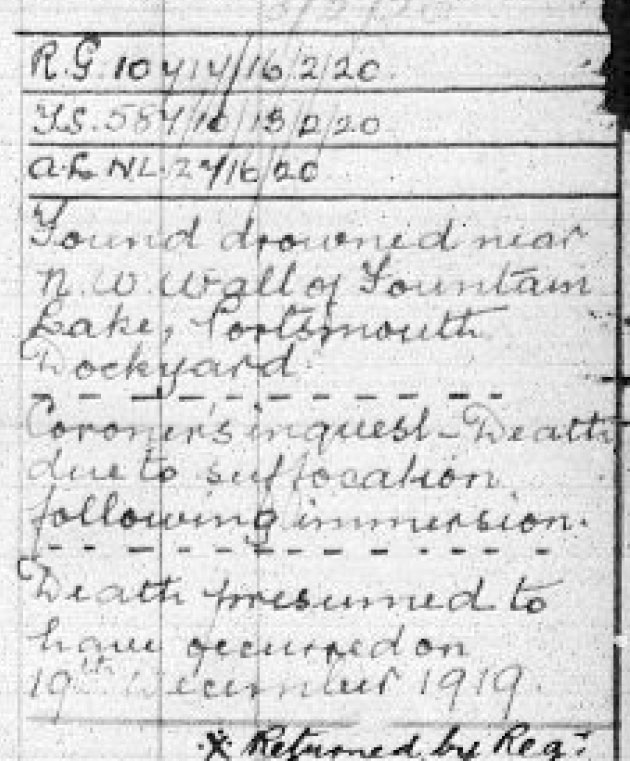 R.G. 10414/16/2/20.
F.S. 584/16/13/2/20
N.L. 24/16/20
Found drowned near
N.W. Wall of Fountain
Lake, Portsmouth
Dockyard.
Coroner's inquest - Death
due to suffocation
following immersion.
Death presumed to
have occurred on
19th December 1919.
x Returned by Reg.